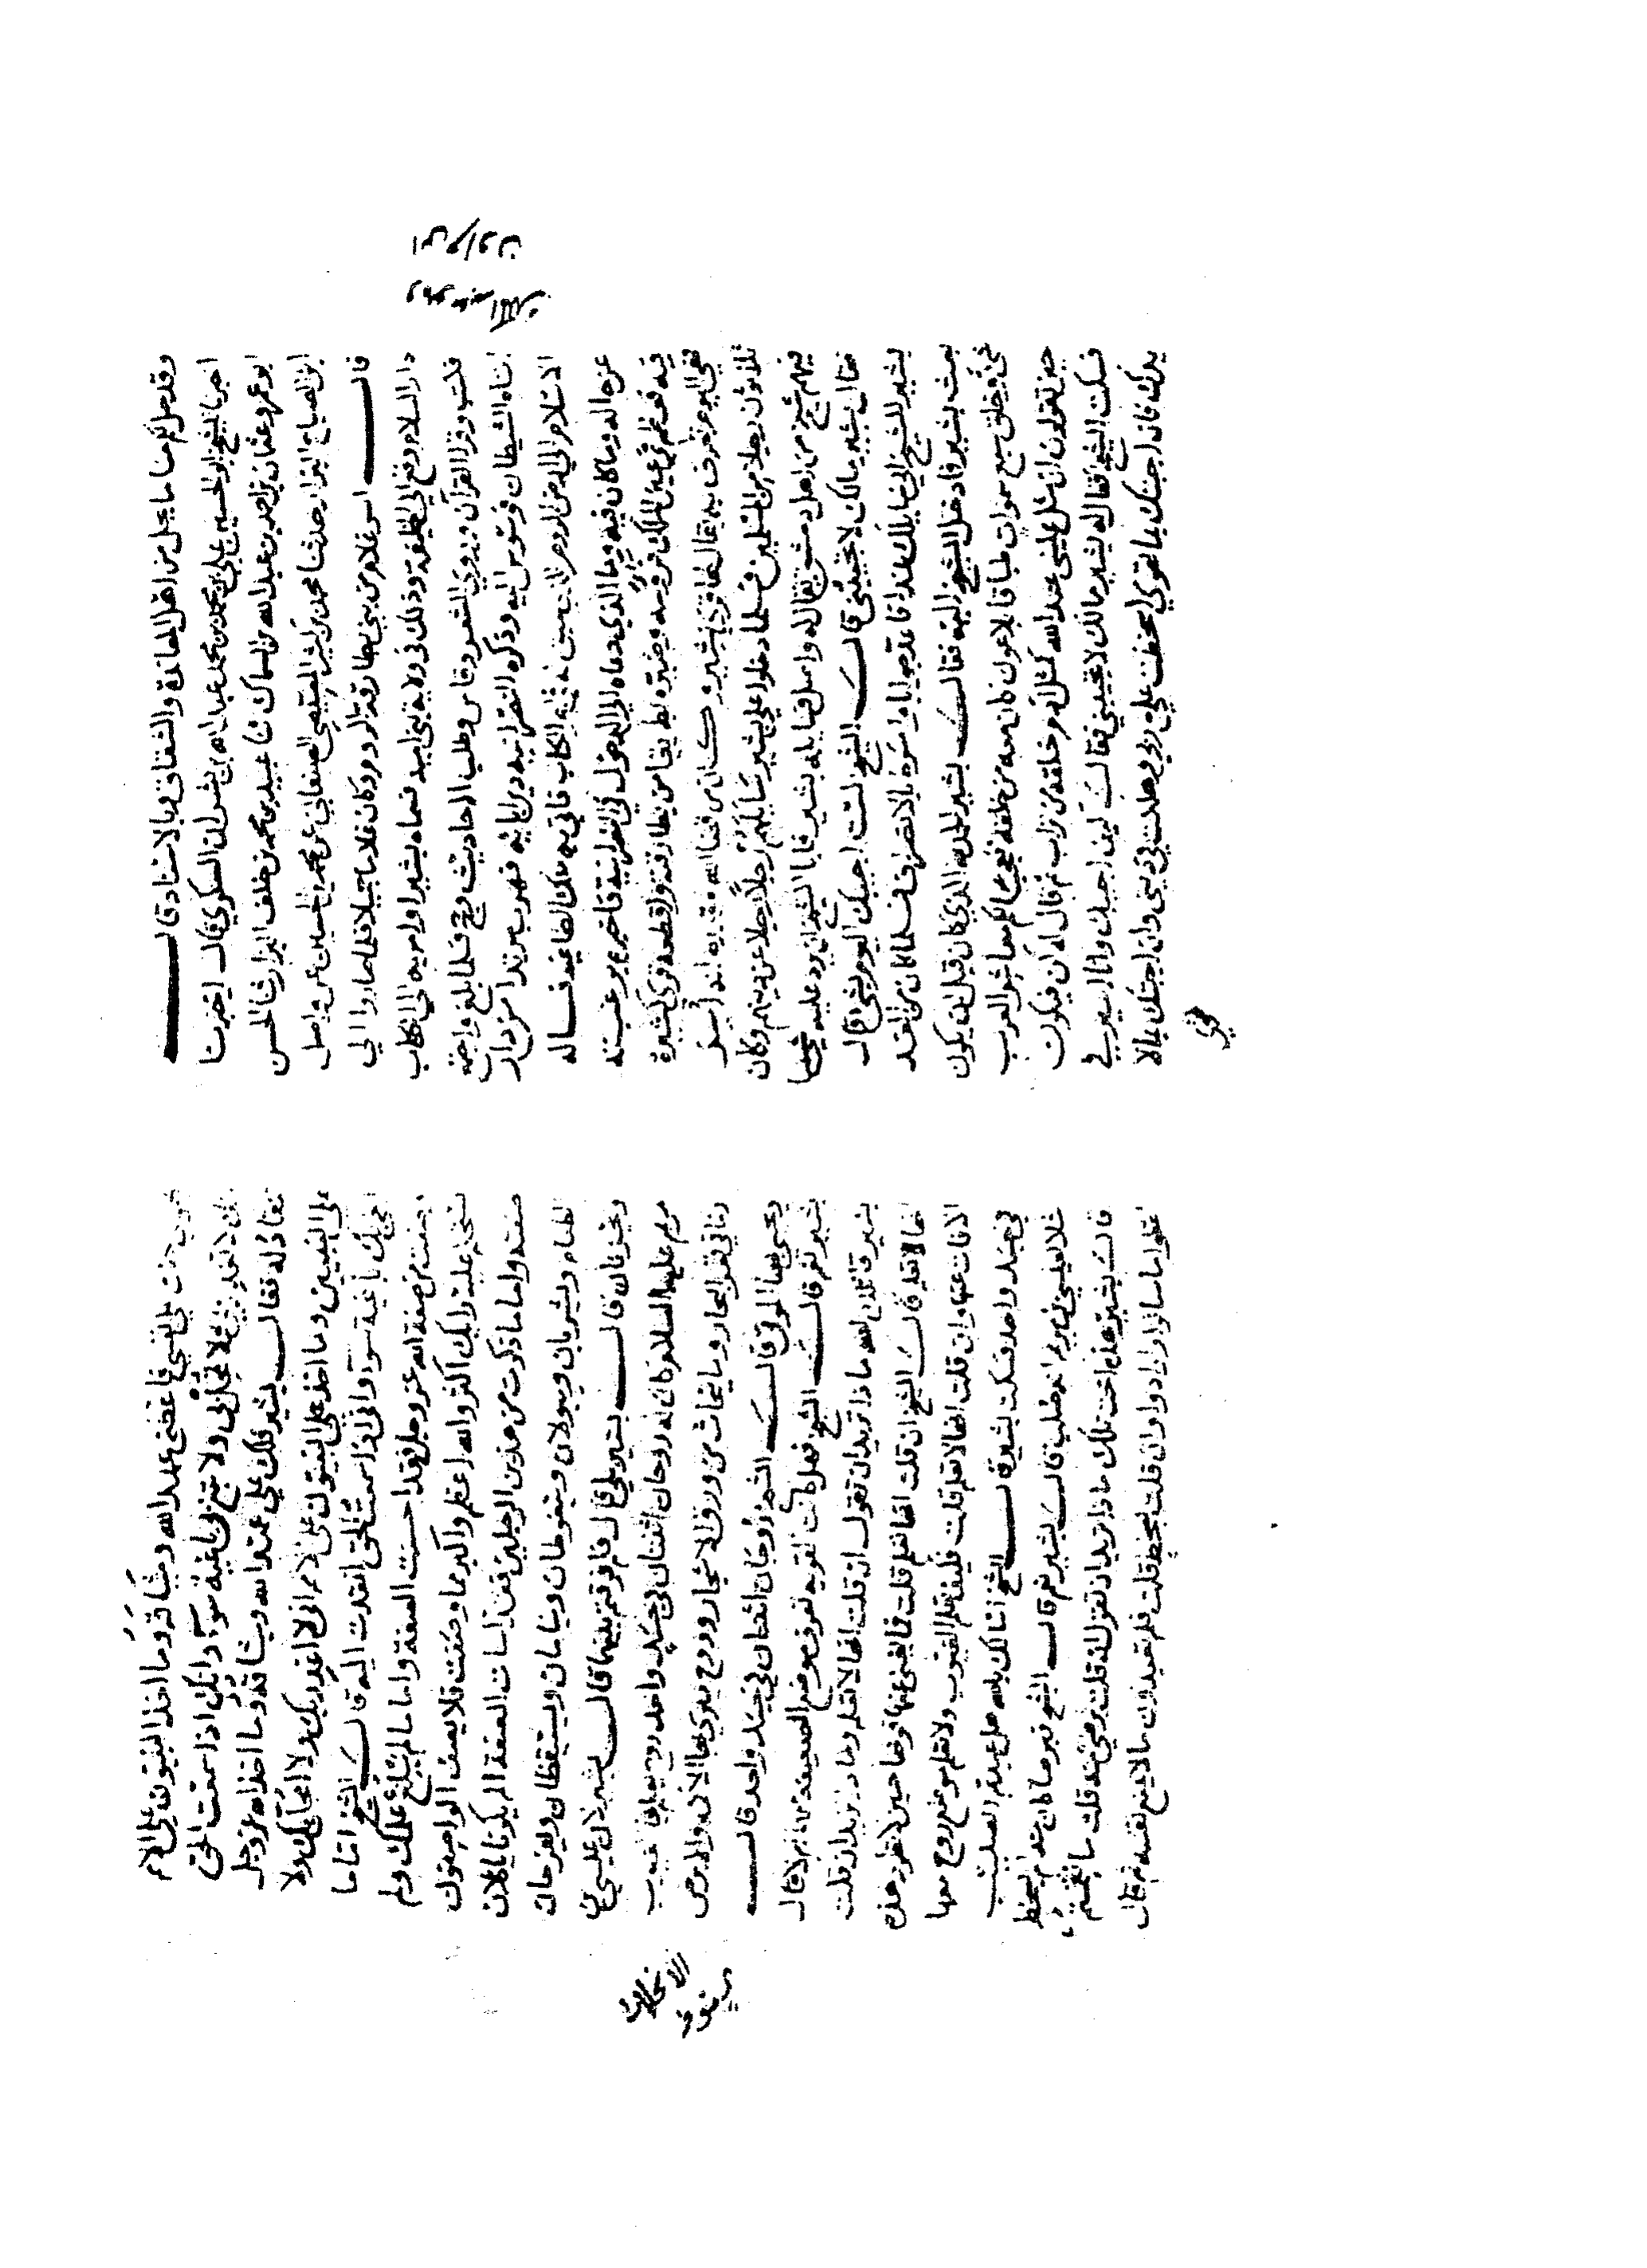 وقد حل لكم منا ما يحل من اهل المعاندة والشقاق وبالاسناد قال
اخبرنا الشيخ ابو الحسين علي بن محمد بن عبد الله بن بشران السكري قال اخبرنا
ابو عمرو عثمان بن احمد بن عبد الله بن السماك ثنا عبيد بن محمد بن خلف البزار ثنا الحسن
بن الصباح البزار حدثنا محمد بن كثير المصيصي الصنعاني عن مخلد بن الحسين عن واصل
قال اسر غلام من بني بطارقة الروم وكان غلاما جميلا فلما صاروا الي
دار السلام وقع الي الخليفة وذلك في ولاية بني امية فسماه بشيرا وامر به الي الكتاب
فكتب وقرا القرآن وروي الشعر وقاس وطلب الاحاديث وحج فلما بلغ واجتمع
اتاه الشيطان فوسوس اليه وذكره النصرانية دين ابائه فهرب مرتدا من دار
الاسلام الي ارض الروم الذي سبق له في ام الكتاب فاتي به ملك الطاغية فساله
عن حاله وما كان فيه وما الذي دعاه الي الدخول في النصرانية فاخبره برغبته
فيه فعظم في عين الملك فرأسه وصيره بطريقا من بطارقته واقطعه قري كثيرة
فهي اليوم تعرف به يقال لها قري بشير وكان من قضا الله وقدره انه أسر
ثلاثون رجلا من المسلمين فلما دخلوا علي بشير سايلهم رجلا رجلا عن دينهم وكان
فيهم شيخ من اهل دمشق يقال له واصل فسايله بشير فابا الشيخ ان يرد عليه شيئا
فقال بشير مالك لا تجيبني قال الشيخ لست اجيبك اليوم بشي قال
بشير للشيخ اني سايلك غدا فاعد جوابا وامره بالانصراف فلما كان من الغد
بعث بشير فادخل الشيخ اليه فقال بشير الحمد لله الذي كان قبل ان يكون
شي وخلق سبع سموات طباقا بلا عون كان معه من خلقه فعجبا لكم معاشر العرب
حين تقولون ان مثل عيسى عند الله كمثل ادم خلقه من تراب ثم قال له كن فيكون
فسكت الشيخ فقال له بشير مالك لا تجيبني فقال كيف اجيبك وانا اسير في
يدك فان اجبتك بما تهوي اسخطت علي ربي وهلكت في ديني وان اجبتك بما لا
علي نفسي فاعطني عهد الله وميثاقه وما اخذ النبيون علي الامم
انك لا تغدر بي ولا تمحل بي ولا تبغي بي باغية سوء وانك اذا سمعت الحق
تنقاد له فقال بشير فلك علي عهد الله وميثاقه وما اخذ الله عز وجل
علي النبيين وما اخذ علي النبيون علي الامم اني لا اغدر بك ولا امحل بك ولا
ابغي بك باغية سوء واني اذا سمعت الحق انقدت اليه قال الشيخ اما ما
وصفت من صفة الله عز وجل فقد احسنت الصفة واما ما لم يبلغ علمك ولم
تستحكم عليه رايك اكثر والله اعظم واكبر مما وصفت فلا يصف الواصفون
صفته واما ما ذكرت من هذين الرجلين فقد اسات الصفة الم يكونا ياكلان
الطعام ويشربان ويبولان ويتغوطان وينامان ويستيقظان ويفرحان
ويحزنان قال بشير بلي قال فلم فرقتم بينهما قال بشير لان عيسي بن
مريم عليه السلام كان له روحان اثنتان في جسد واحد روح يعلم بها الغيوب
وما في قعر البحار وما يتحات من ورق الاشجار وروح يبري بها الاكمه والابرص
ويحيي بها الموتي قال الشيخ روحان اثنتان في جسد واحد قال
بشير نعم قال الشيخ فهل كانت القوية تعرف موضع الضعيفة منهما ام لا قال
بشير قاتلك الله ماذا تريد ان تقول ان قلت انها لا تعلم وماذا تريد ان قلت
انها لا تعلم قال الشيخ ان قلت انها تعلم قلت فما يغني عنها قوتها حين لا تطرد هذه
الافات عنها وان قلت انها لا تعلم قلت فكيف تعلم الغيوب ولا تعلم موضع روح معها
في جسد واحد فسكت بشير قال الشيخ اسالك بالله هل عبدتم الصليب
مثلا لعيسي بن مريم انه صلب قال بشير نعم قال الشيخ فبرضا كان منه ام بسخط
قال بشير هذه اخت تلك ماذا تريد ان تقول ان قلت برضي منه قلت ما نقمتم
اعطوا ما سالوا وارادوا وان قلت بسخط قلت فلم تعبدون ما لا يمنع نفسه ثم قال